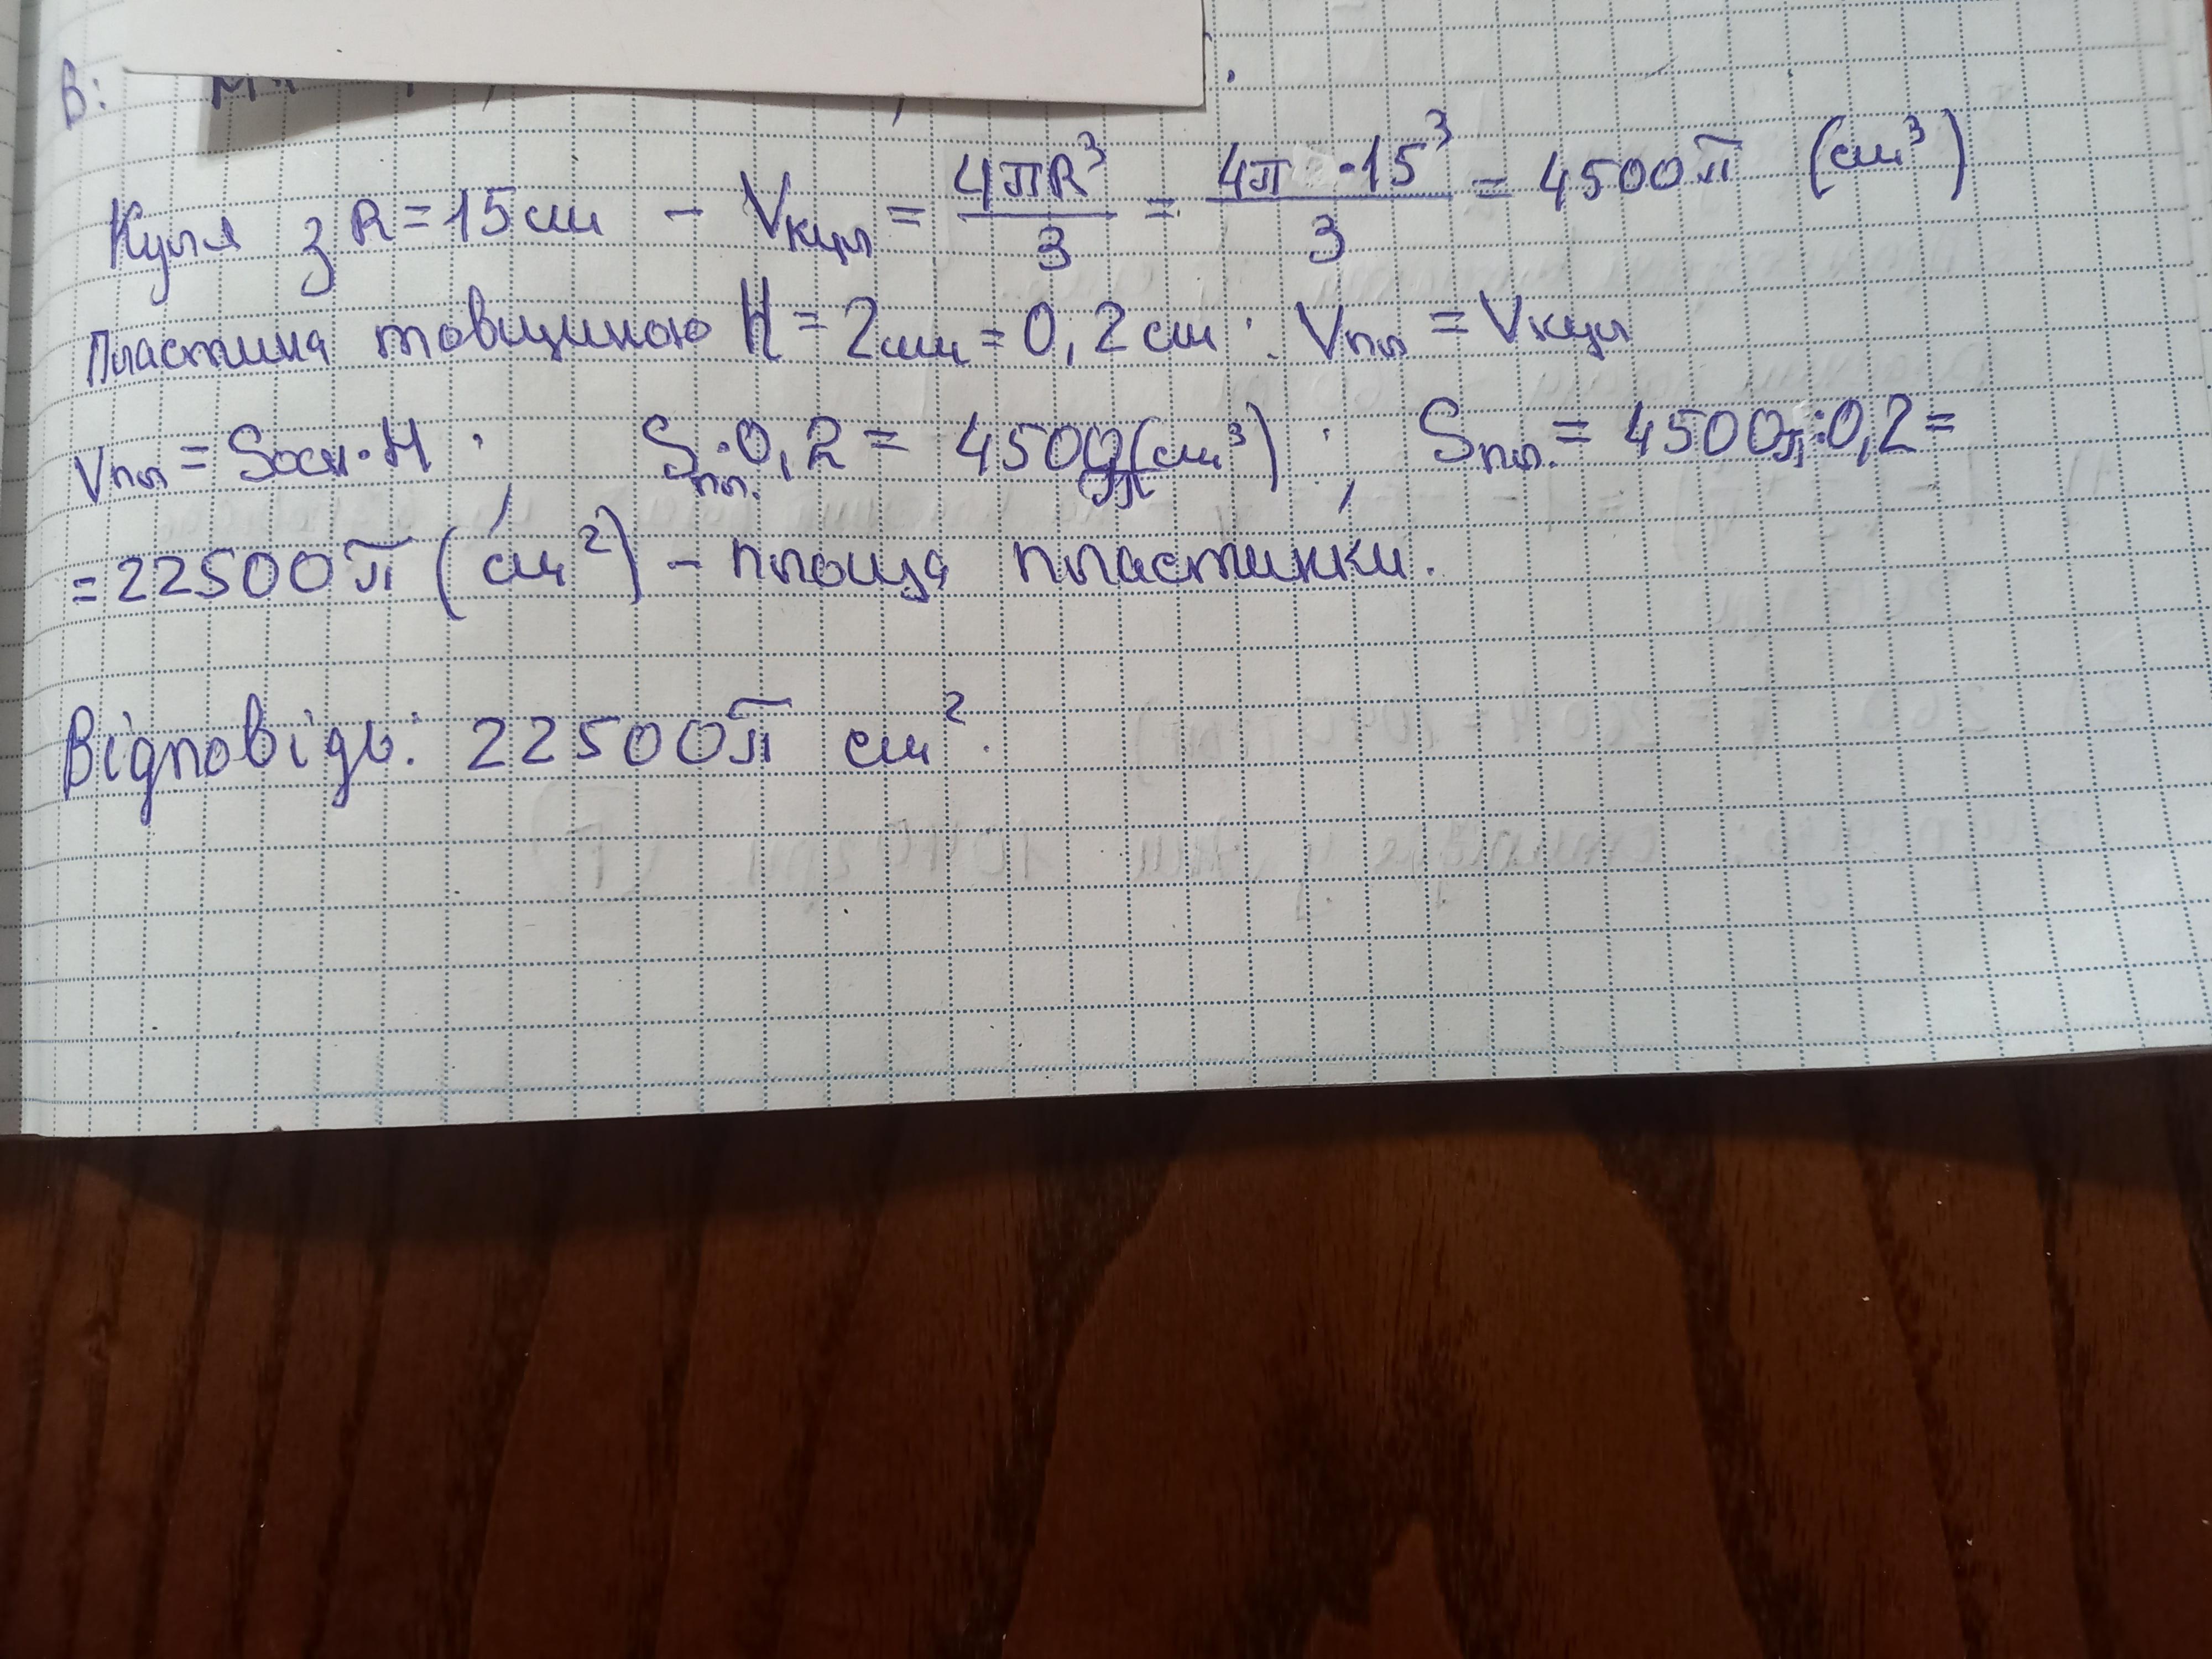 В:
Куля з R = 15 см – Vкулі = 4πR³/3 = 4π · 15³/3 = 4500π (см³)
Пластина товщиною H = 2мм = 0,2 см; Vпл = Vкулі
Vпл = Sосн · H; Sпл. · 0,2 = 4500π (см³); Sпл. = 4500π : 0,2 =
= 22500π (см²) – площа пластинки.
Відповідь: 22500π см².